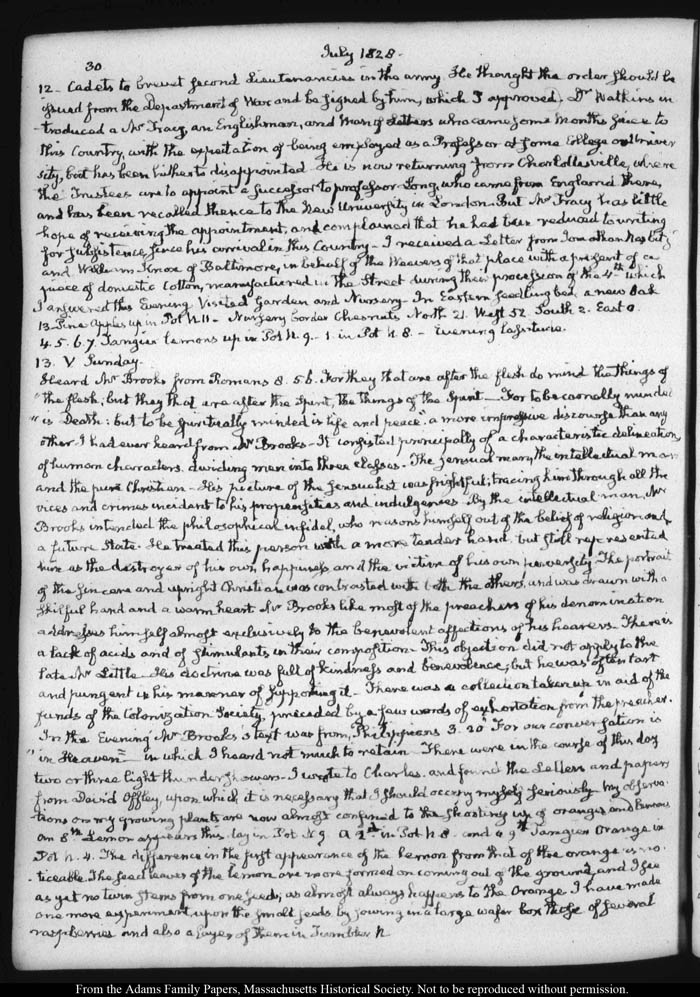 July 1828.
30
12. Cadets to brevet second Lieutenancies in the army. He thought the order should be
issued from the Department of War and be signed by him, which I approved. Dr Watkins in-
troduced a Mr Tracy, an Englishman, and Man of Letters who came some months since to
this Country, with the expectation of being employed as a Professor at some College or Univer
sity, but has been hitherto disappointed. He is now returning from Charlottesville, where
the Trustees are to appoint a successor to professor Long, who came from England there,
and has been recalled thence to the New University in London. But Mr Tracy has little
hope of receiving the appointment, and complained that he had been reduced to writing
for subsistence, since his arrival in this Country. I received a Letter from Jonathan
and William Knox of Baltimore, in behalf of the Weavers of that place with a present of a
piece of domestic Cotton, manufactured in the Street during their procession of the 4th which
I answered this Evening. Visited Garden and Nursery. In Eastern seedling bed, a new Oak
13. Pine Apples up in Pot N. 11 - Nursery border Chesnuts North 21. West 52. South 2. East 0.
4. 5. 6. 7. Tangier Lemons up in Pot N. 9. - 1. in Pot N. 8. - Evening lassitude.
13. V. Sunday.
Heard Mr Brooks from Romans 8. 5.6. For they that are after the flesh do mind the things of
"the flesh; but they that are after the Spirit, the things of the Spirit - For to be carnally minded
"is Death: but to be spiritually minded is life and peace" a more impressive discourse than any
other I had ever heard from Mr Brooks - It consisted principally of a characteristic delineation,
of human characters, dividing men into three classes. The sensual man, the intellectual man
and the pure Christian - His picture of the sensualist was frightful; tracing him through all the
vices and crimes incident to his propensities and indulgences. By the intellectual man, Mr
Brooks intended the philosophical infidel, who reasons himself out of the belief of religion and
a future State. He treated this person with a more tender hand, but still represented
him as the destroyer of his own happiness, and the victim of his own perversity. The portrait
of the sincere and upright Christian was contrasted with both the others, and was drawn with a
skilful hand and a warm heart. Mr Brooks like most of the preachers of his denomination
addresses himself almost exclusively to the benevolent affections of his hearers. There is
a lack of acids and of stimulants in their composition. This objection did not apply to the
late Mr Little. His doctrine was full of kindness and benevolence; but he was often tart
and pungent in his manner of supporting it. There was a collection taken up in aid of the
funds of the Colonization Society, preceded by a few words of exhortation from the preacher.
In the Evening Mr Brooks's text was from Philippians 3. 20 "For our conversation is
"in Heaven" in which I heard not much to retain. There were in the course of this day
two or three light thunder showers. I wrote to Charles, and found the Letters and papers
from David Offley, upon which it is necessary that I should occupy myself seriously. My observa
tions on my growing plants are now almost confined to the shooting up of oranges and Lemons
an 8th Lemon appears this day in Pot N 9. a 2d in Pot N 8. and a 9th Tangier Orange in
Pot N. 4. The difference in the first appearance of the lemon from that of the orange is no-
ticeable. The seed leaves of the lemon are more formed on coming out of the ground, and I see
as yet no twin stems from one seed; as almost always happens to the Orange. I have made
one more experiment upon the small seeds by sowing in a large wafer box those of several
raspberries and also a layer of them in Tumbler N
From the Adams Family Papers, Massachusetts Historical Society. Not to be reproduced without permission.